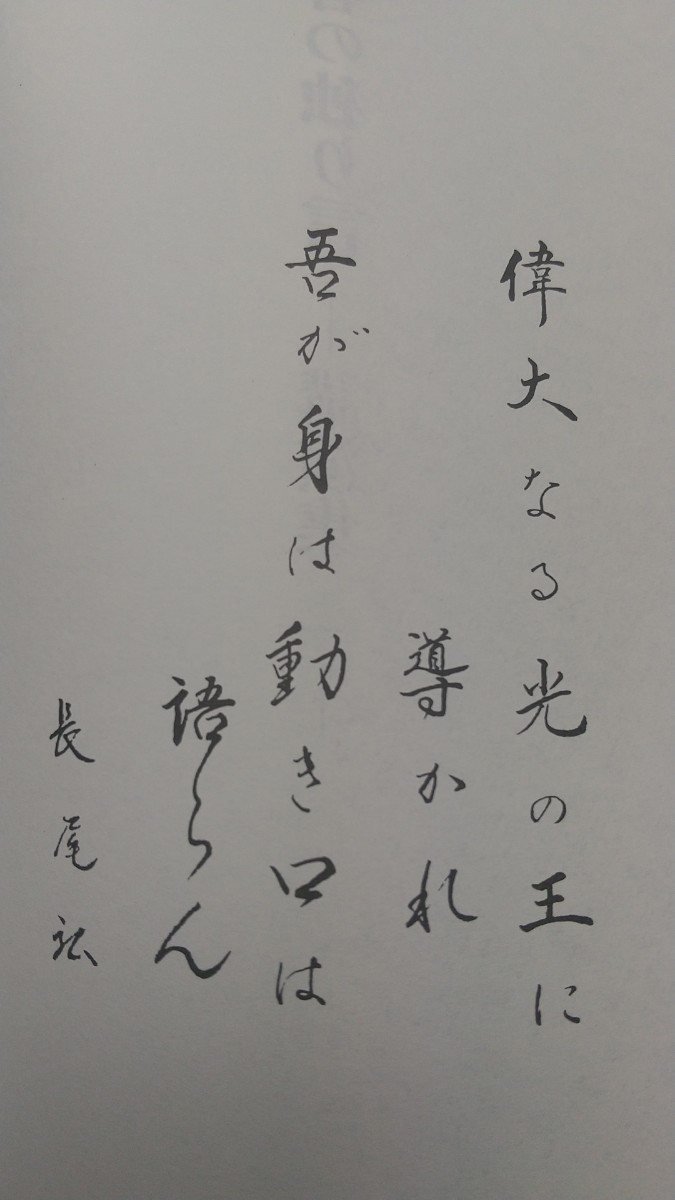 偉大なる光の王に
導かれ
吾が身は動き口は
語らん
長尾弘